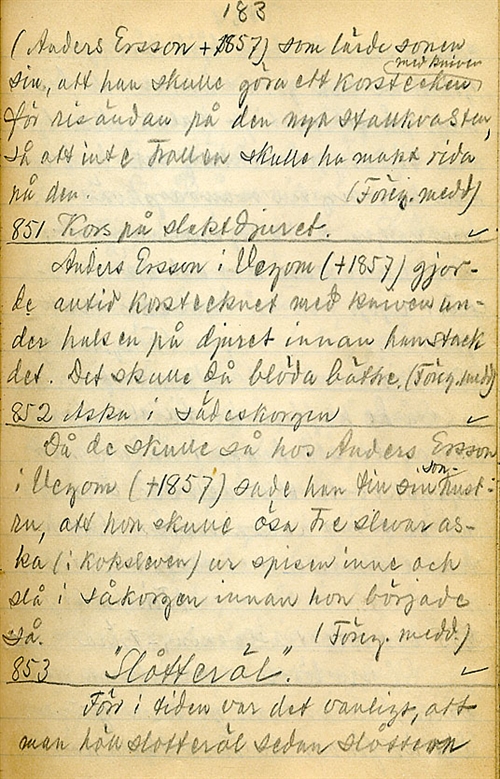 183
(Anders Ersson + 1857) som lärde sonen
med kniven
sin, att han skulle göra ett korstecken
för risändan på den nya stallkvasten,
så att inte trollen skulle ha makt rida
på den. (Föreg. medd)
851 Kors på slaktdjuret.
Anders Ersson i Vezom (+1857) gjor-
de alltid korstecknet med kniven un-
der halsen på djuret innan han stack
det. Det skulle då blöda bättre. (Föreg. medd)
852 Aska i sädeskorgen
Då de skulle så hos Anders Ersson
son-
i Vezom (+1857) sade han till sin hust-
ru, att hon skulle ösa tre slevar as-
ka (i koksleven) ur spisen inne och
slå i såkorgen innan hon började
så. (Föreg. medd.)
853 "Slåtteröl".
Förr i tiden var det vanligt, att
man höll slotteröl sedan slåttern